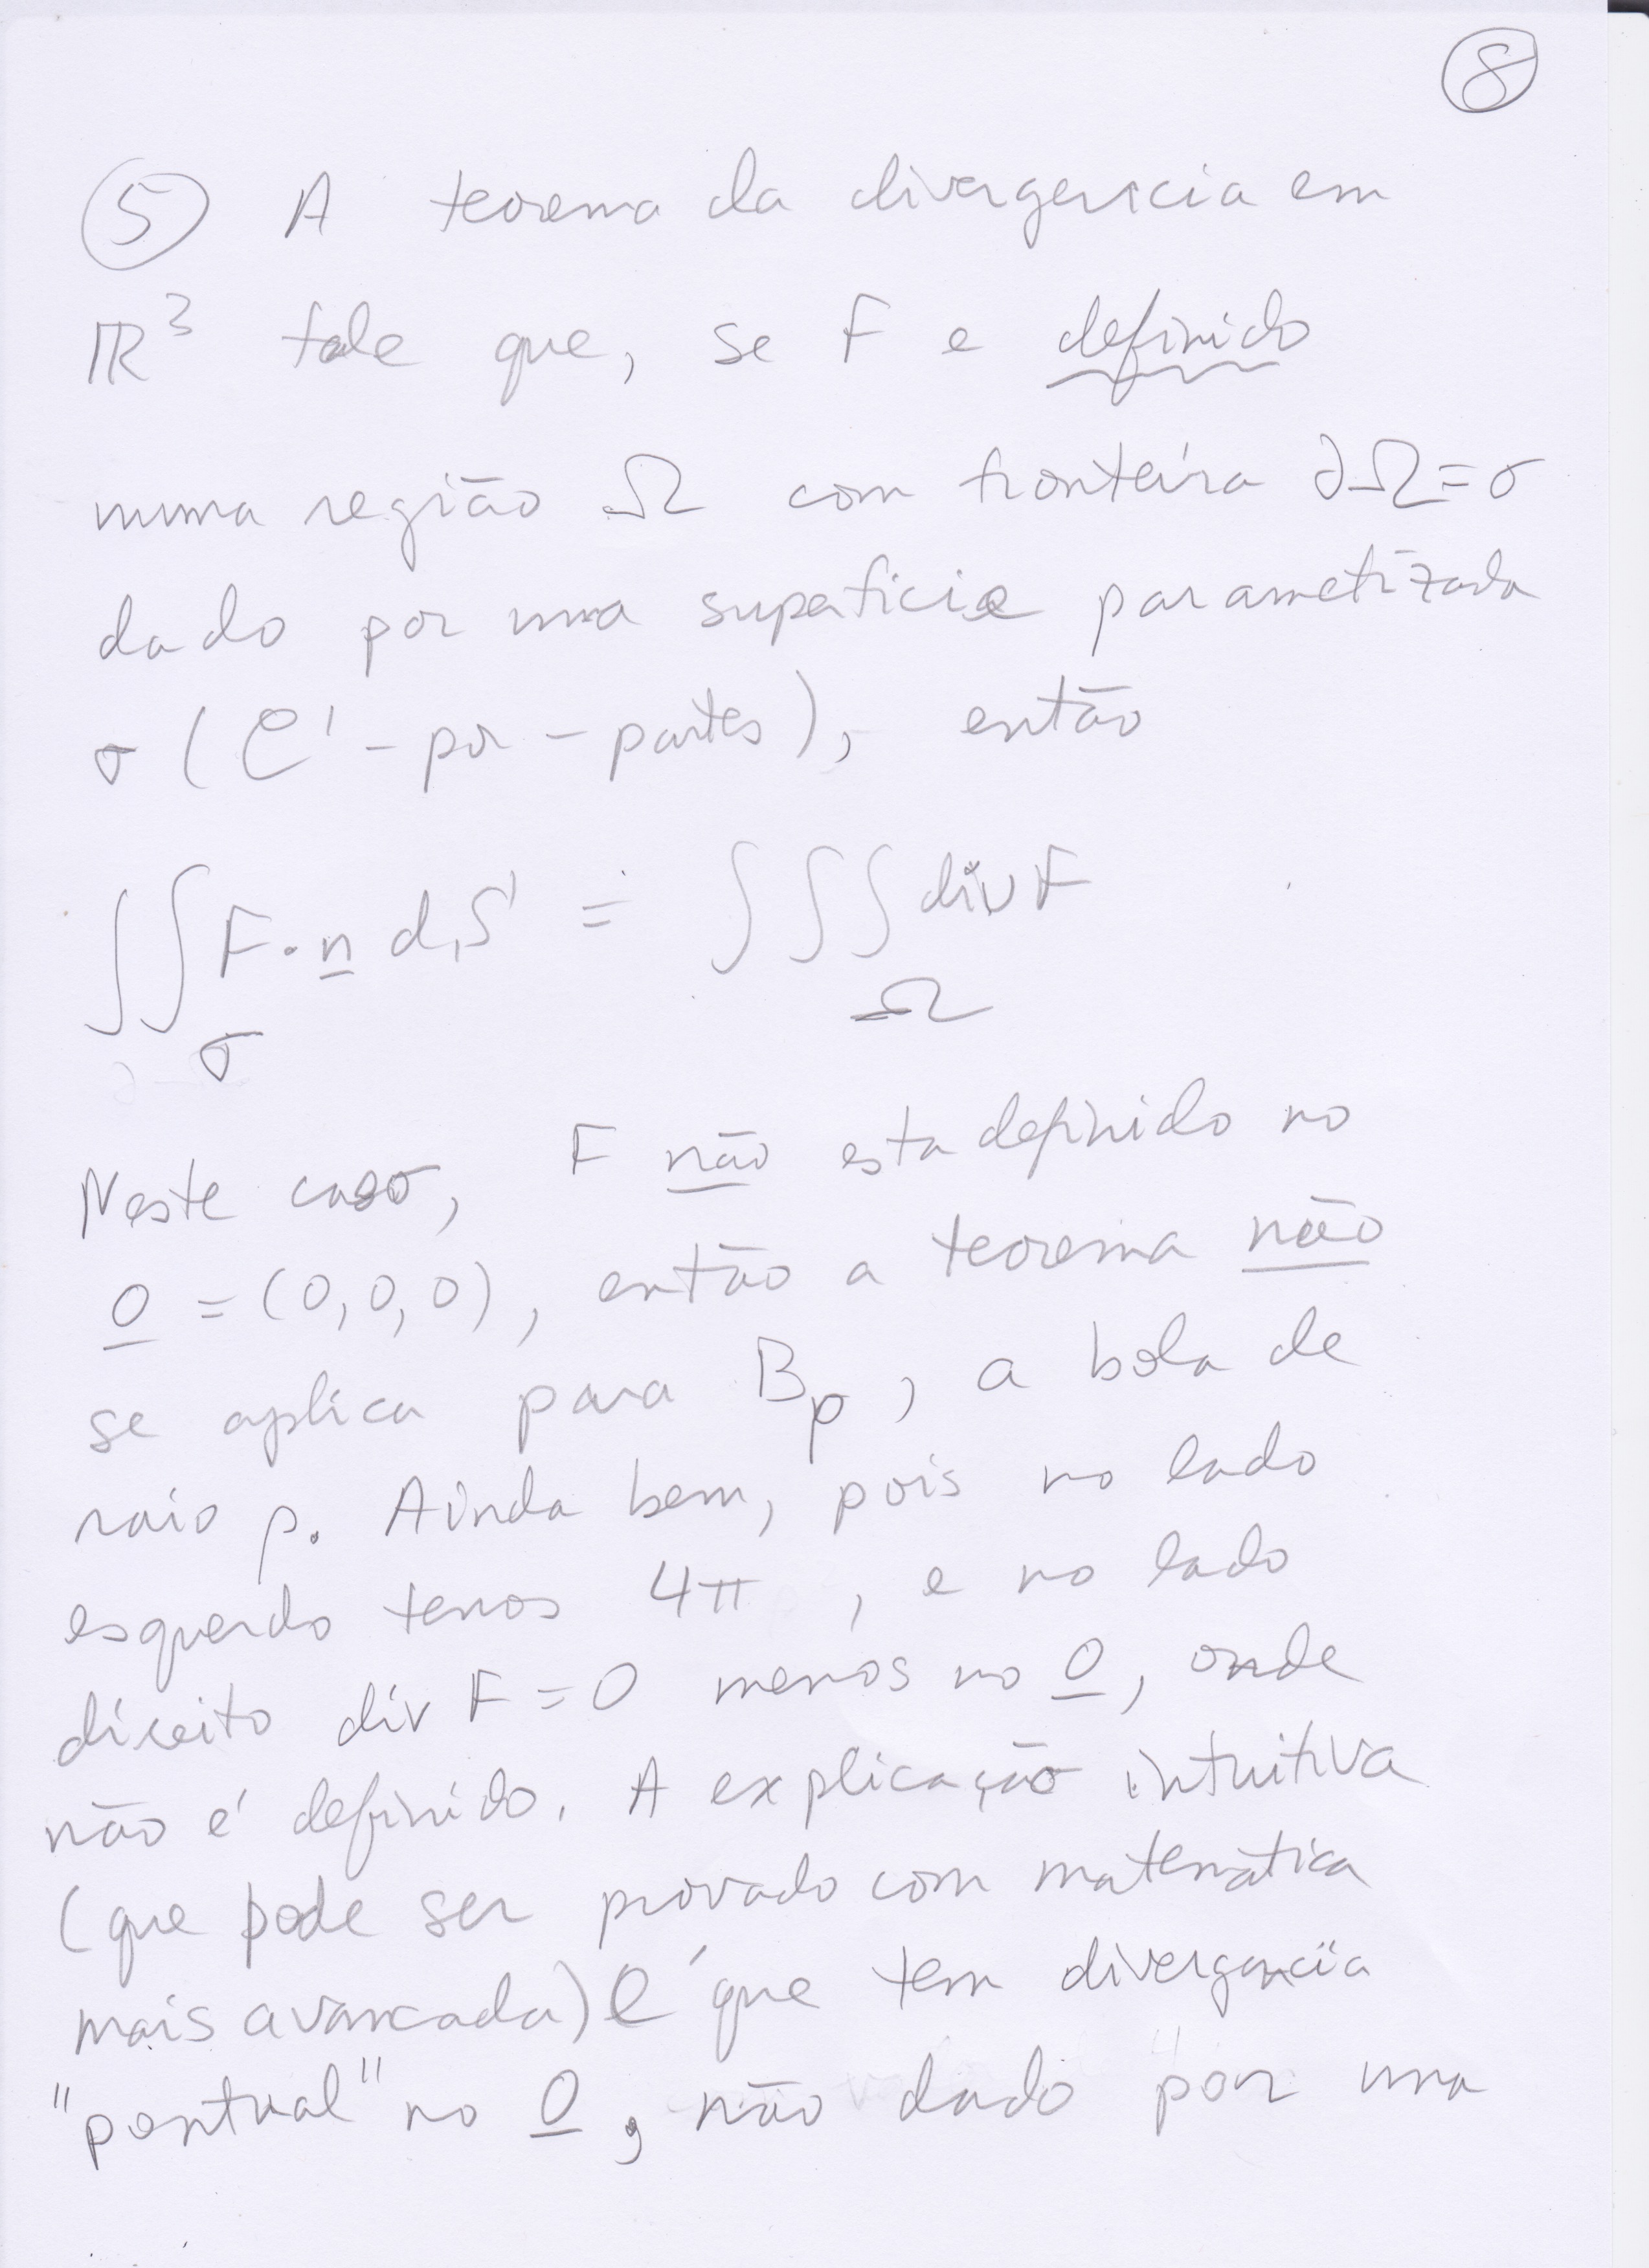 8
5 A teorema da divergencia em
ℝ³ fale que, se F e definido
numa região Ω com fronteira ∂Ω=σ
dado por uma superficie parametrizada
σ (C¹-por-partes), então
∫∫_σ F·n dS = ∫∫∫_Ω div F
Neste caso, F não esta definido no
0 = (0,0,0), então a teorema não
se aplica para Bρ, a bola de
raio ρ. Ainda bem, pois no lado
esquerdo temos 4π, e no lado
direito div F = 0 menos no 0, onde
não é definido. A explicação intuitiva
(que pode ser provado com matemática
mais avancada) é que tem divergencia
"pontual" no 0, não dado por uma